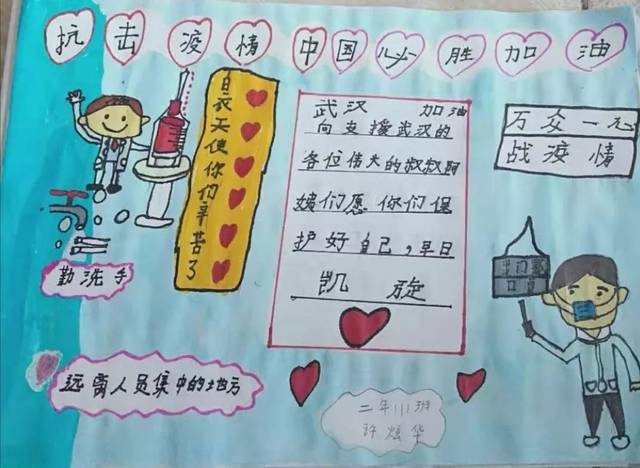 抗击疫情中国必胜加油
白衣天使你们辛苦了
武汉 加油
向支援武汉的
各位伟大的叔叔阿
姨们愿你们保
护好自己，早日
凯旋
万众一心
战疫情
勤洗手
远离人员集中的地方
二年111班
许炫华